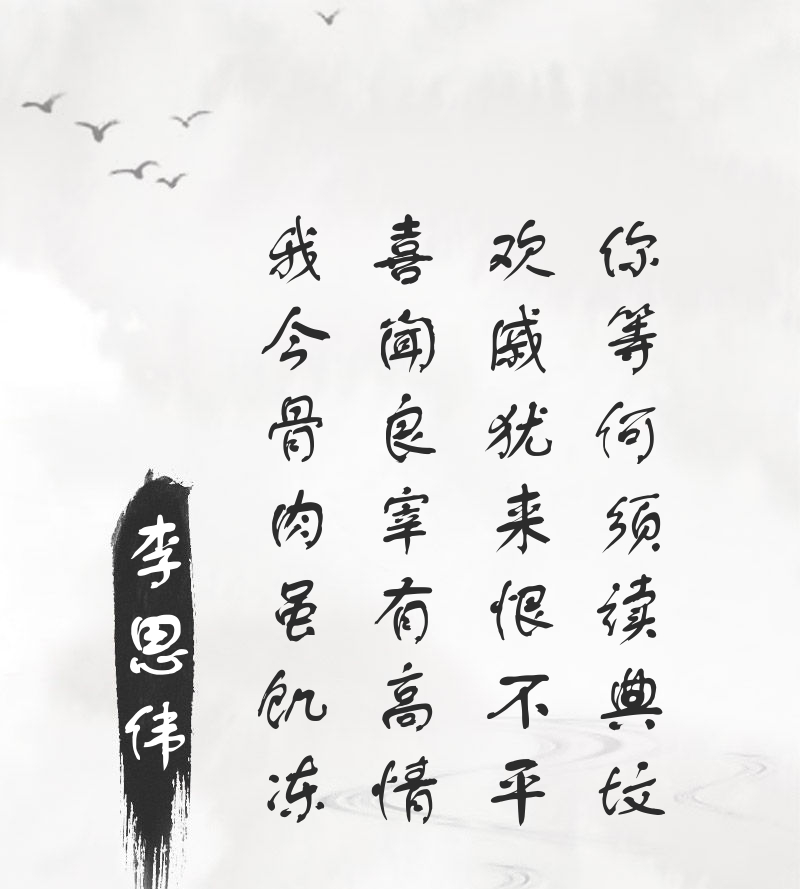 李思伟
我今骨肉虽饥冻
喜闻良宰有高情
欢戚犹来恨不平
你等何须读典坟